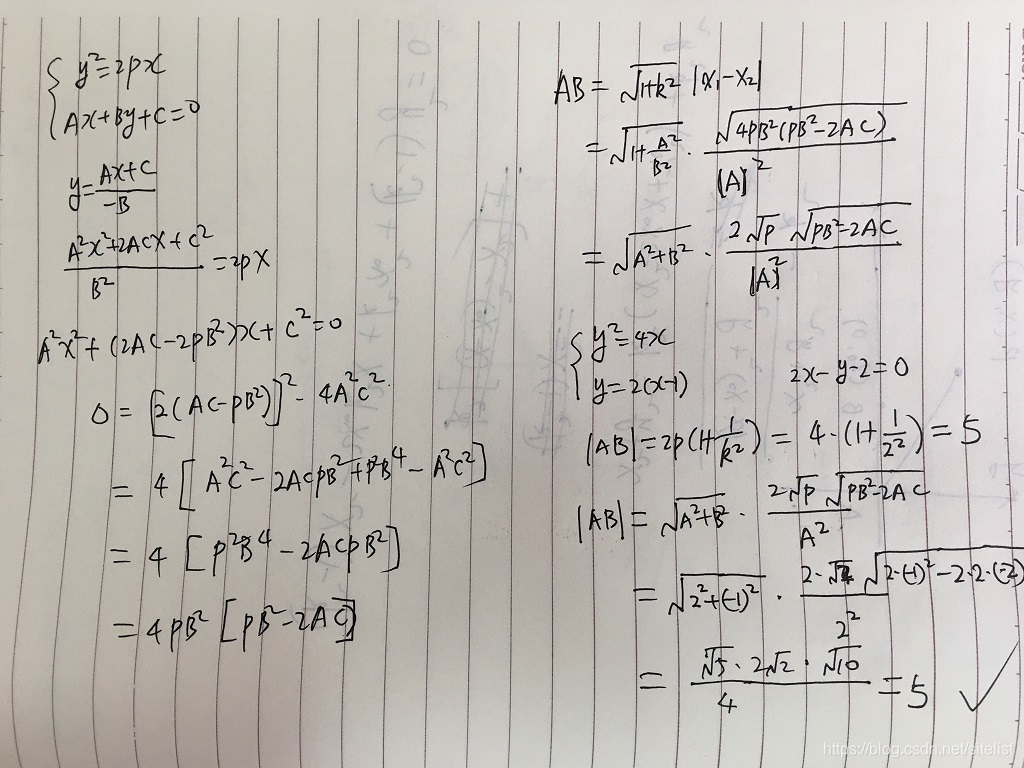 { y²=2px
Ax+By+C=0
y=(Ax+C)/(-B)
(A²x²+2ACx+C²)/B² =2px
A²x²+(2AC-2pB²)x+C²=0
0=[2(AC-pB²)]²-4A²C²
=4[A²C²-2ACpB²+p²B⁴-A²C²]
=4[p²B⁴-2ACpB²]
=4pB²[pB²-2AC]
AB=√(1+k²) |x₁-x₂|
=√(1+A²/B²)·√(4pB²(pB²-2AC))/|A|²
=√(A²+B²)·2√p √(pB²-2AC)/|A|²
{ y²=4x
y=2(x-1) 2x-y-2=0
|AB|=2p(1+1/k²)=4·(1+1/2²)=5
|AB|=√(A²+B²)·2√p √(pB²-2AC)/A²
=√(2²+(-1)²)·2·√2 √(2·(-1)²-2·2·(-2))/2²
=√5·2√2·√10/4=5 ✓
https://blog.csdn.net/sitelist